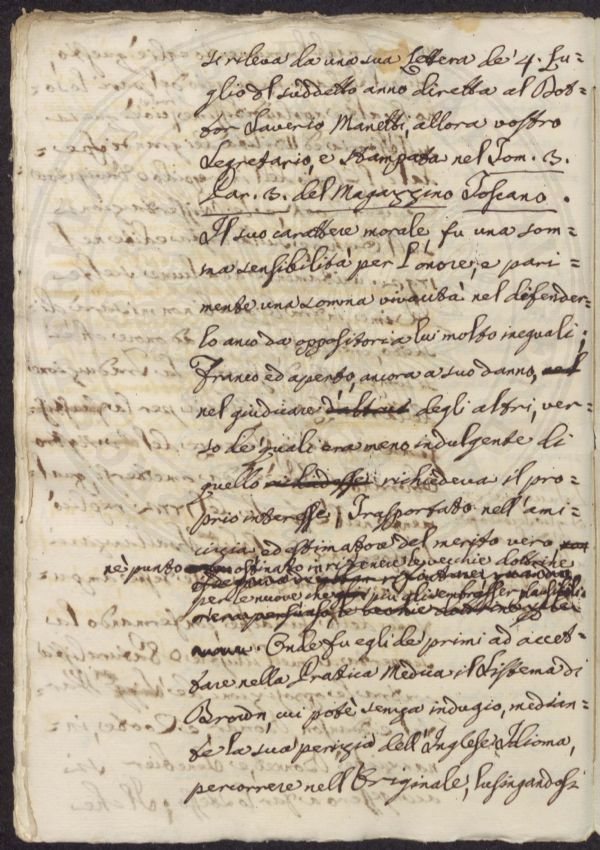 si rileva da una sua Lettera de' 4. Lu=
glio del suddetto anno diretta al Dot=
tor Saverio Manetti, allora vostro
Segretario, e stampata nel Tom. 3.
Par. 3. del Magazzino Toscano.
Il suo carattere morale fu una som=
ma sensibilità per l'onore, e pari=
mente una somma vivacità nel difender=
lo anco da oppositori a lui molto ineguali;
Franco ed aperto, ancora a suo danno, nel
nel giudicare d'altrui degli altri, ver=
so de' quali era meno indulgente di
quello richiedesse richiedeva il pro=
prio interesse; Trasportato nell'ami=
cizia, ed estimatore del merito vero
nè punto ostinato in ritenere le vecchie dottrine
per le nuove che più gli sembrasser plausibili
Onde fu egli de' primi ad accet=
tare nella Pratica Medica il Sistema di
Brown, cui potè senza indugio, median=
te la sua perizia dell'Inglese Idioma,
percorrere nell'Originale, lusingandosi